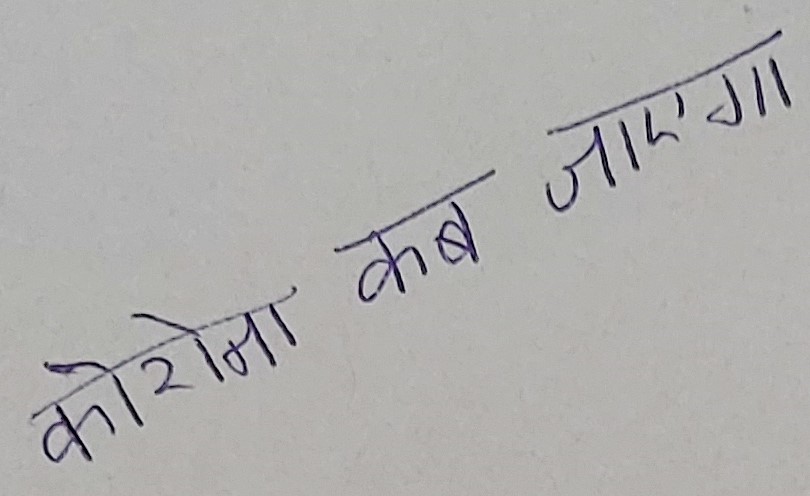 कोरोना कब जाएगा